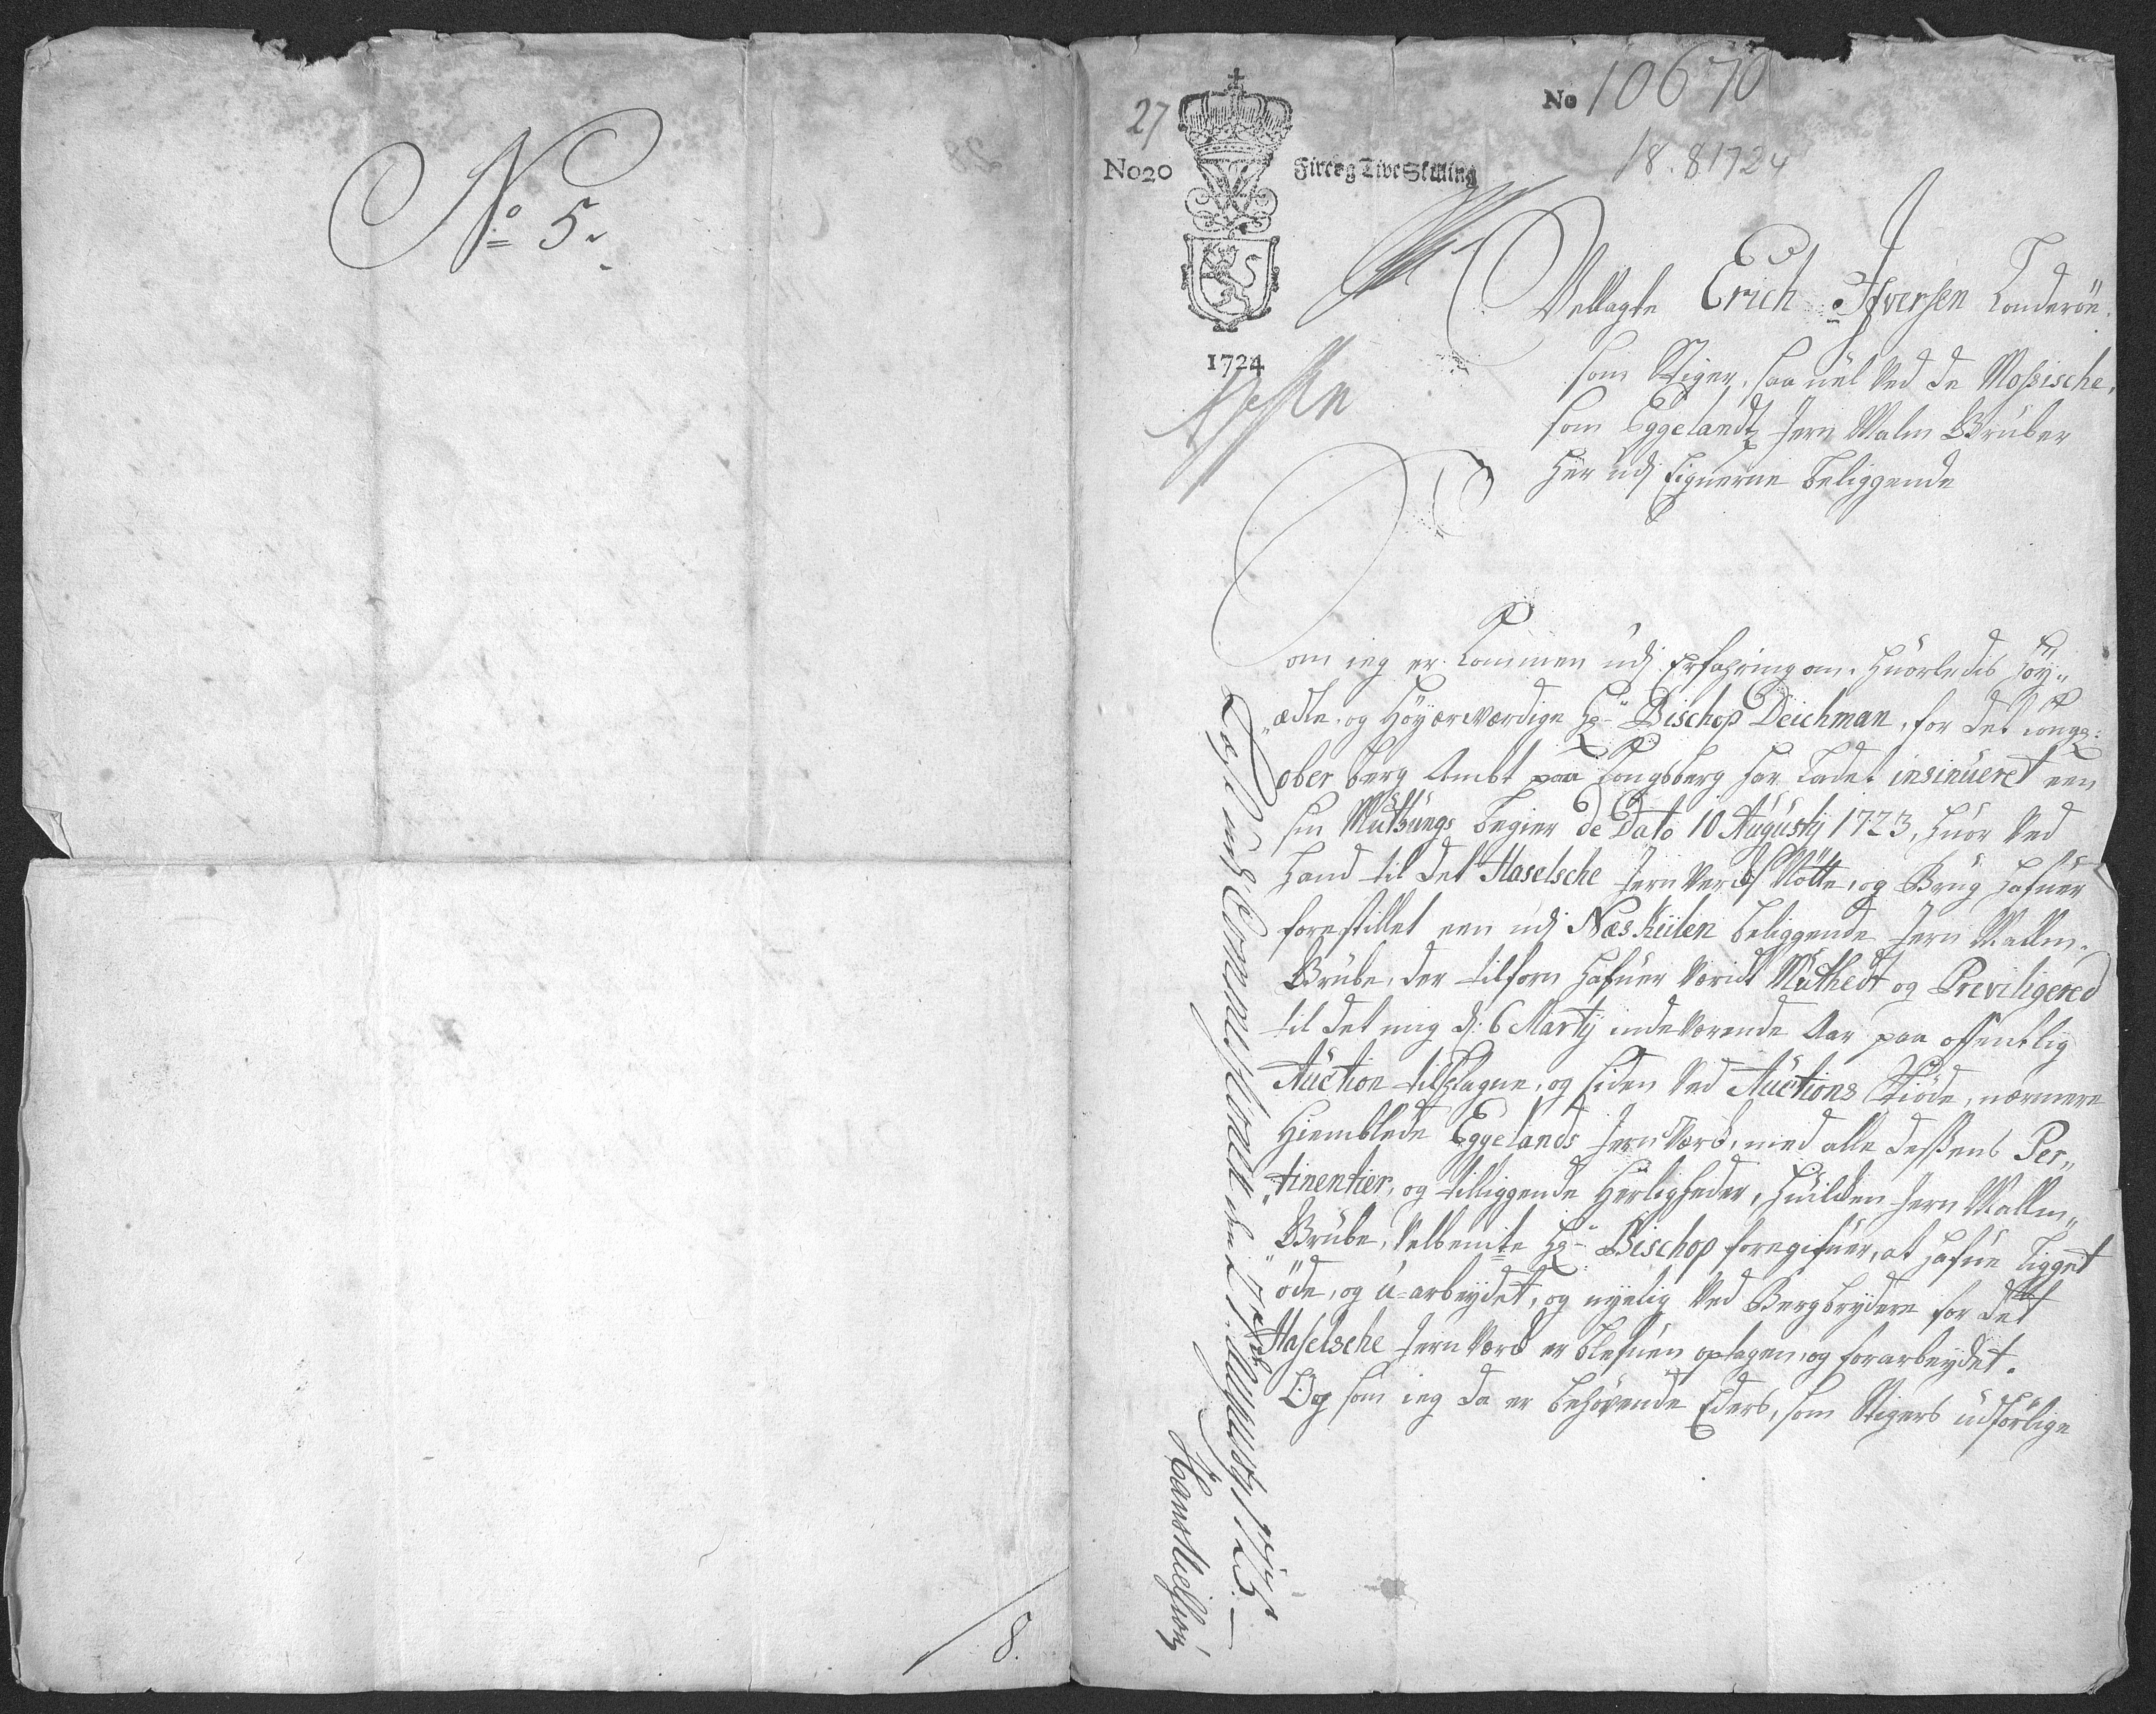 No 5.
8.
27
No 10670
18. 8 1724
No 20
Fire og Tive Skilling
1724
Vellagte Erich Ifversen
som Stiger, saa vel ved de Mossische,
som Eggelandtz Jern Malm Gruber
her udj Eignerne beliggende
Som ieg er kommen udj Erfahring om, huorledis Høy„
„ædle og Høyærværdige Hr Bischop Deichman, for det kongl:
ober berg Ambt paa Kongsberg har ladet insinueret een
sin Muthungs begier de Dato 10 Augusty 1723, huor ved
hand til det Haselsche Jern Vercks Nötte, og Brug hafuer
forestillet een udj Næs Kiilen beliggende Jern Mallm„
Grube, der tilforn hafuer værit Muthedt og Previligered
til det mig d: 6 Marty indeværende Aar paa offentlig
Auction tilslagne, og siden ved Auctions Skiöde, nærmere
Hiemblede Eggelands Jern Værck, med alle dessens Per„
„tinentier, og tilliggende Herligheder, huilcken Jern Mallm„
„Grube, Velbemte Hr Bischop foregifuer, at hafue ligget
öde, og u-arbeydet, og nyelig ved Bergbrydere for det
Haselsche Jern Værck er blefuen optagen, og forarbeydet.
Og som ieg da er behøvende Eders, som Stigers udførlige
27 Augusty 1725.
Hans Nielsen